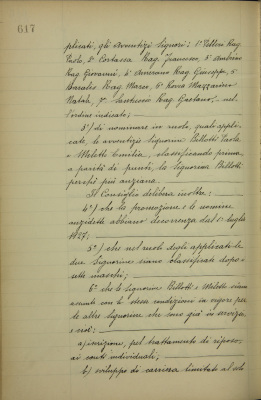 617
plicati, gli avventizi Signori: 1° Velloni Rag.
Paolo, 2° Cortassa Rag. Francesco, 3° Ambrosi
Rag. Giovanni, 4° Amerano Rag. Giuseppe, 5°
Rag. Marco, 6° Rossi Mazzarino
Natale, 7° Rag. Gaetano, - nel=
l'ordine indicato;
3°) di nominare in ruolo, quali appli=
cate, le avventizie Signorine Billotti Carla
e Meletti Emilia, classificando prima,
a parità di punti, la Signorina Billotti
perché più anziana.
Il Consiglio delibera inoltre:
4°) che la promozione e le nomine
anzidette abbiano decorrenza dal 1° luglio
1927;
5°) che nel ruolo degli applicati le
due Signorine siano classificate dopo i
sette maschi;
6° che le Signorine Billotti e Meletti siano
assunte con le stesse condizioni in vigore per
le altre signorine che sono già in servizio,
e cioè:
a) iscrizione, pel trattamento di riposo,
ai conti individuali;
b) sviluppo di carriera limitato al solo